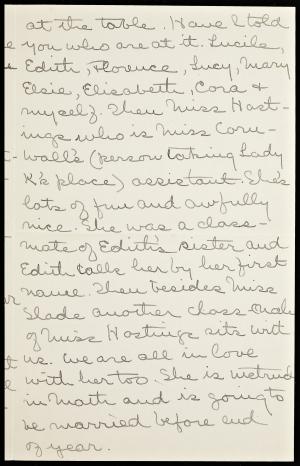 at the table. Have I told
you who are at it. Lucile,
Edith, Florence, Lucy, Mary
Elsie, Elisabeth, Cora &
myself. Then Miss Hast-
ings who is Miss Corn-
wall's (person taking Lady
K's place) assistant. She's
lots of fun and awfully
nice. She was a class-
mate of Edith's sister and
Edith calls her by her first
name. Then besides Miss
Slade another class-mate
of Miss Hastings sits with
us. We are all in love
with her too. She is
in Math and is going to
be married before end
of year.